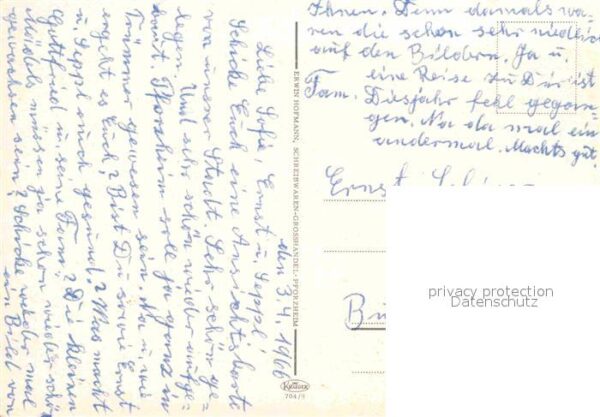 den 3.4.1916
Liebe Sofie, Ernst u. Seppl!
Schicke Euch eine Ansichtskarte
von unsrer Stadt. Sehr schön ge=
legen. Und sehr schön wieder aufge=
baut. Pforzheim soll ja ganz in
Trümmer gewesen sein. Na u. wie
ergeht es Euch? Bist Du sowie Ernst
u. Seppl auch gesund? Was macht
Gottfried u. seine Fam? Die kleinen
Mädels müssen ja schon wieder schön
gewachsen sein? Schicke wieder mal
ein Bild von
Ihnen. Denn damals wa=
ren die schon sehr niedlich
auf den Bildern. Ja u.
eine Reise zu Dir ist
Fam. Diesjahr fehl gegan=
gen. Na da mal ein
andermal. Machts gut
ERWIN HOFMANN, SCHREIBWAREN-GROSSHANDEL - PFORZHEIM
Krüger
704/9
Ernst
privacy protection
Datenschutz